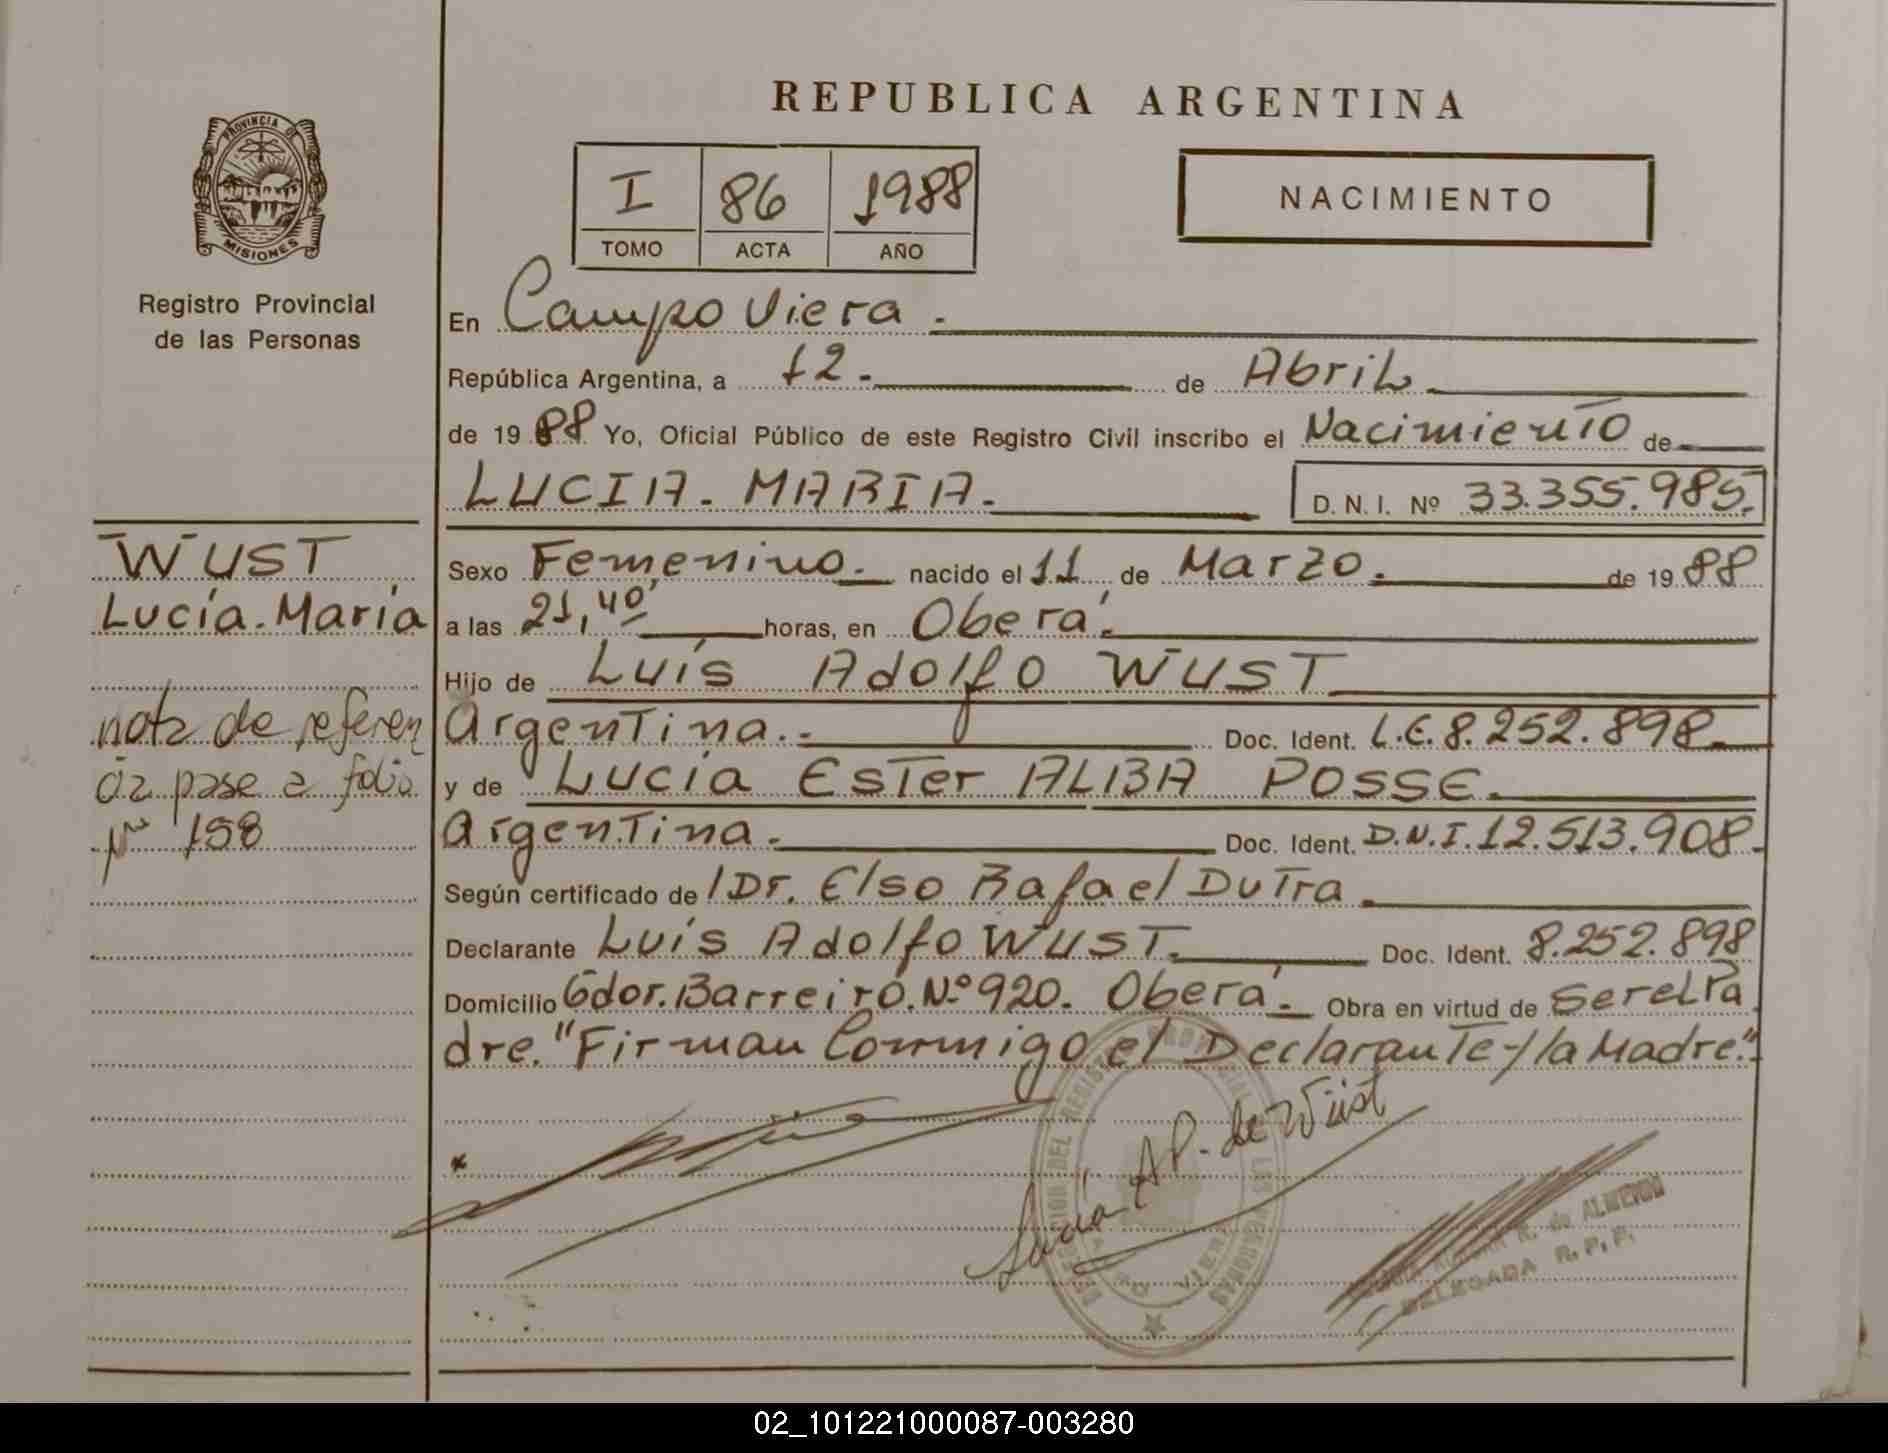 REPUBLICA ARGENTINA
PROVINCIA DE
MISIONES
Registro Provincial
de las Personas
I 86 1988
TOMO ACTA AÑO
NACIMIENTO
En Campo Viera.
República Argentina, a 12. de Abril
de 1988 Yo, Oficial Público de este Registro Civil inscribo el Nacimiento de
LUCIA. MARIA. D. N. I. Nº 33.355.985.
WUST
Lucía. María
nota de referen
cia pase a folio
Nº 158
Sexo Femenino. nacido el 11 de Marzo. de 1988
a las 21,40' horas, en Oberá.
Hijo de Luís Adolfo WUST
Argentina. Doc. Ident. L.E. 8.252.898.
y de Lucía Ester ALBA POSSE.
Argentina. Doc. Ident. D.N.I. 12.513.908.
Según certificado de Dr. Elso Rafael Dutra.
Declarante Luís Adolfo WUST. Doc. Ident. 8.252.898
Domicilio Gdor. Barreiro. Nº 920. Oberá. Obra en virtud de SerelPa
dre. "Firman Conmigo el Declarante y la Madre."
Lucía AP. de Wüst
DEL REGISTRO PROVINCIAL DE LAS PERSONAS
VIERA
R. de ALMEIDA
DELEGADA R. P. P.
02_101221000087-003280